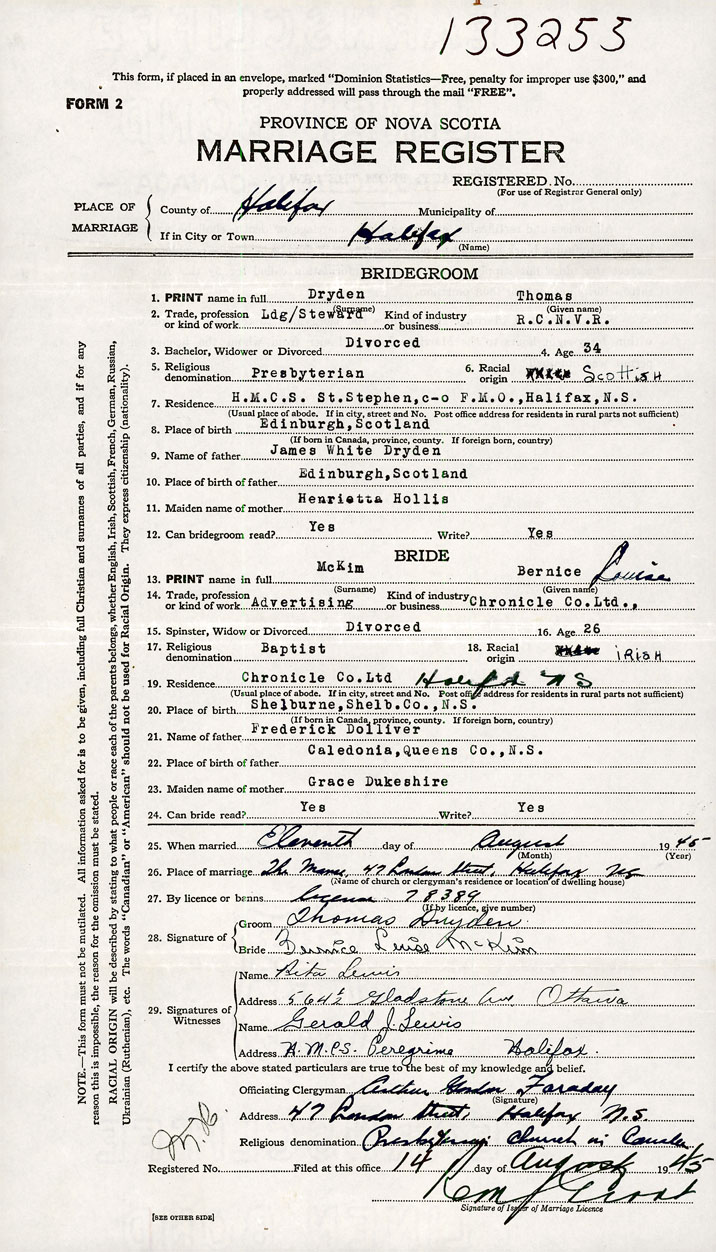 133255
This form, if placed in an envelope, marked “Dominion Statistics—Free, penalty for improper use $300,” and
properly addressed will pass through the mail “FREE”.
FORM 2
PROVINCE OF NOVA SCOTIA
MARRIAGE REGISTER
REGISTERED. No.
(For use of Registrar General only)
PLACE OF MARRIAGE
County of Halifax Municipality of
If in City or Town Halifax
(Name)
BRIDEGROOM
1. PRINT name in full Dryden Thomas
(Surname) (Given name)
2. Trade, profession or kind of work Ldg/Steward Kind of industry or business R.C.N.V.R.
3. Bachelor, Widower or Divorced Divorced 4. Age 34
5. Religious denomination Presbyterian 6. Racial origin Scottish
7. Residence H.M.C.S. St.Stephen,c-o F.M.O.,Halifax,N.S.
(Usual place of abode. If in city, street and No. Post office address for residents in rural parts not sufficient)
8. Place of birth Edinburgh,Scotland
(If born in Canada, province, county. If foreign born, country)
9. Name of father James White Dryden
10. Place of birth of father Edinburgh,Scotland
11. Maiden name of mother Henrietta Hollis
12. Can bridegroom read? Yes Write? Yes
BRIDE
13. PRINT name in full McKim Bernice Louise
(Surname) (Given name)
14. Trade, profession or kind of work Advertising Kind of industry or business Chronicle Co.Ltd.,
15. Spinster, Widow or Divorced Divorced 16. Age 26
17. Religious denomination Baptist 18. Racial origin IRISH
19. Residence Chronicle Co.Ltd Halifax N S
(Usual place of abode. If in city, street and No. Post office address for residents in rural parts not sufficient)
20. Place of birth Shelburne,Shelb.Co.,N.S.
(If born in Canada, province, county. If foreign born, country)
21. Name of father Frederick Dolliver
22. Place of birth of father Caledonia,Queens Co.,N.S.
23. Maiden name of mother Grace Dukeshire
24. Can bride read? Yes Write? Yes
25. When married Eleventh day of August 1945
(Month) (Year)
26. Place of marriage The Manse, 47 London Street, Halifax NS
(Name of church or clergyman's residence or location of dwelling house)
27. By licence or banns license 78389
(If by licence, give number)
28. Signature of
Groom Thomas Dryden
Bride Bernice Louise McKim
29. Signatures of Witnesses
Name Rita Lewis
Address 564½ Gladstone Ave Ottawa
Name Gerald J. Lewis
Address H.M.C.S. Peregrine Halifax.
I certify the above stated particulars are true to the best of my knowledge and belief.
Officiating Clergyman Arthur Gordon Faraday
(Signature)
Address 47 London Street, Halifax N.S.
Religious denomination Presbyterian Church in Canada
Registered No. Filed at this office 14 day of August 1945
Signature of Issuer of Marriage Licence
[SEE OTHER SIDE]
NOTE.—This form must not be mutilated. All information asked for is to be given, including full Christian and surnames of all parties, and if for any
reason this is impossible, the reason for the omission must be stated.
RACIAL ORIGIN will be described by stating to what people or race each of the parents belongs, whether English, Irish, Scottish, French, German, Russian,
Ukrainian (Ruthenian), etc. The words “Canadian” or “American” should not be used for Racial Origin. They express citizenship (nationality).